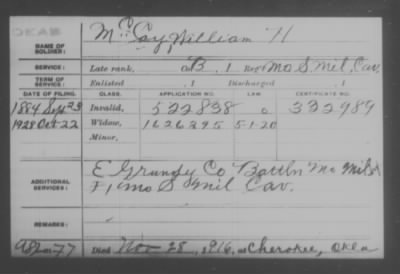 DEAD
McCay William H
NAME OF SOLDIER:
SERVICE: Late rank, Co B, 1 Reg't Mo S. Mil. Cav.
TERM OF SERVICE: Enlisted , 1 Discharged , 1
DATE OF FILING. CLASS. APPLICATION NO. LAW. CERTIFICATE NO.
1884 Sept 23 Invalid, 522838 0 332989
1928 Oct 22 Widow, 1626295 5-1-20
Minor,
ADDITIONAL SERVICES: E Grundy Co Battln Mo Mil &
F, 1 Mo S Mil Cav.
REMARKS:
Died Nov 28, 1916, at Cherokee, Okla